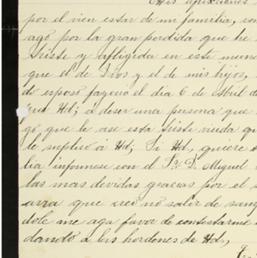 por el vien estar de mi familia, son
agó por la gran perdida que he
triste y afligida en este mun
que el de Dios y el de mis hijos,
do esposó fayeció el dia 6 de Abril d
á Ud; á deser una persona que
gó, que le ase esta triste viuda qu
le suplicó á Ud; Si Ud, quiere
lia informese con el Sr. D. Miguel
las mas devidas gracias por el
que reci no salir de san
dole me aga favor de contestarme
dandó a las hordenes de Ud,